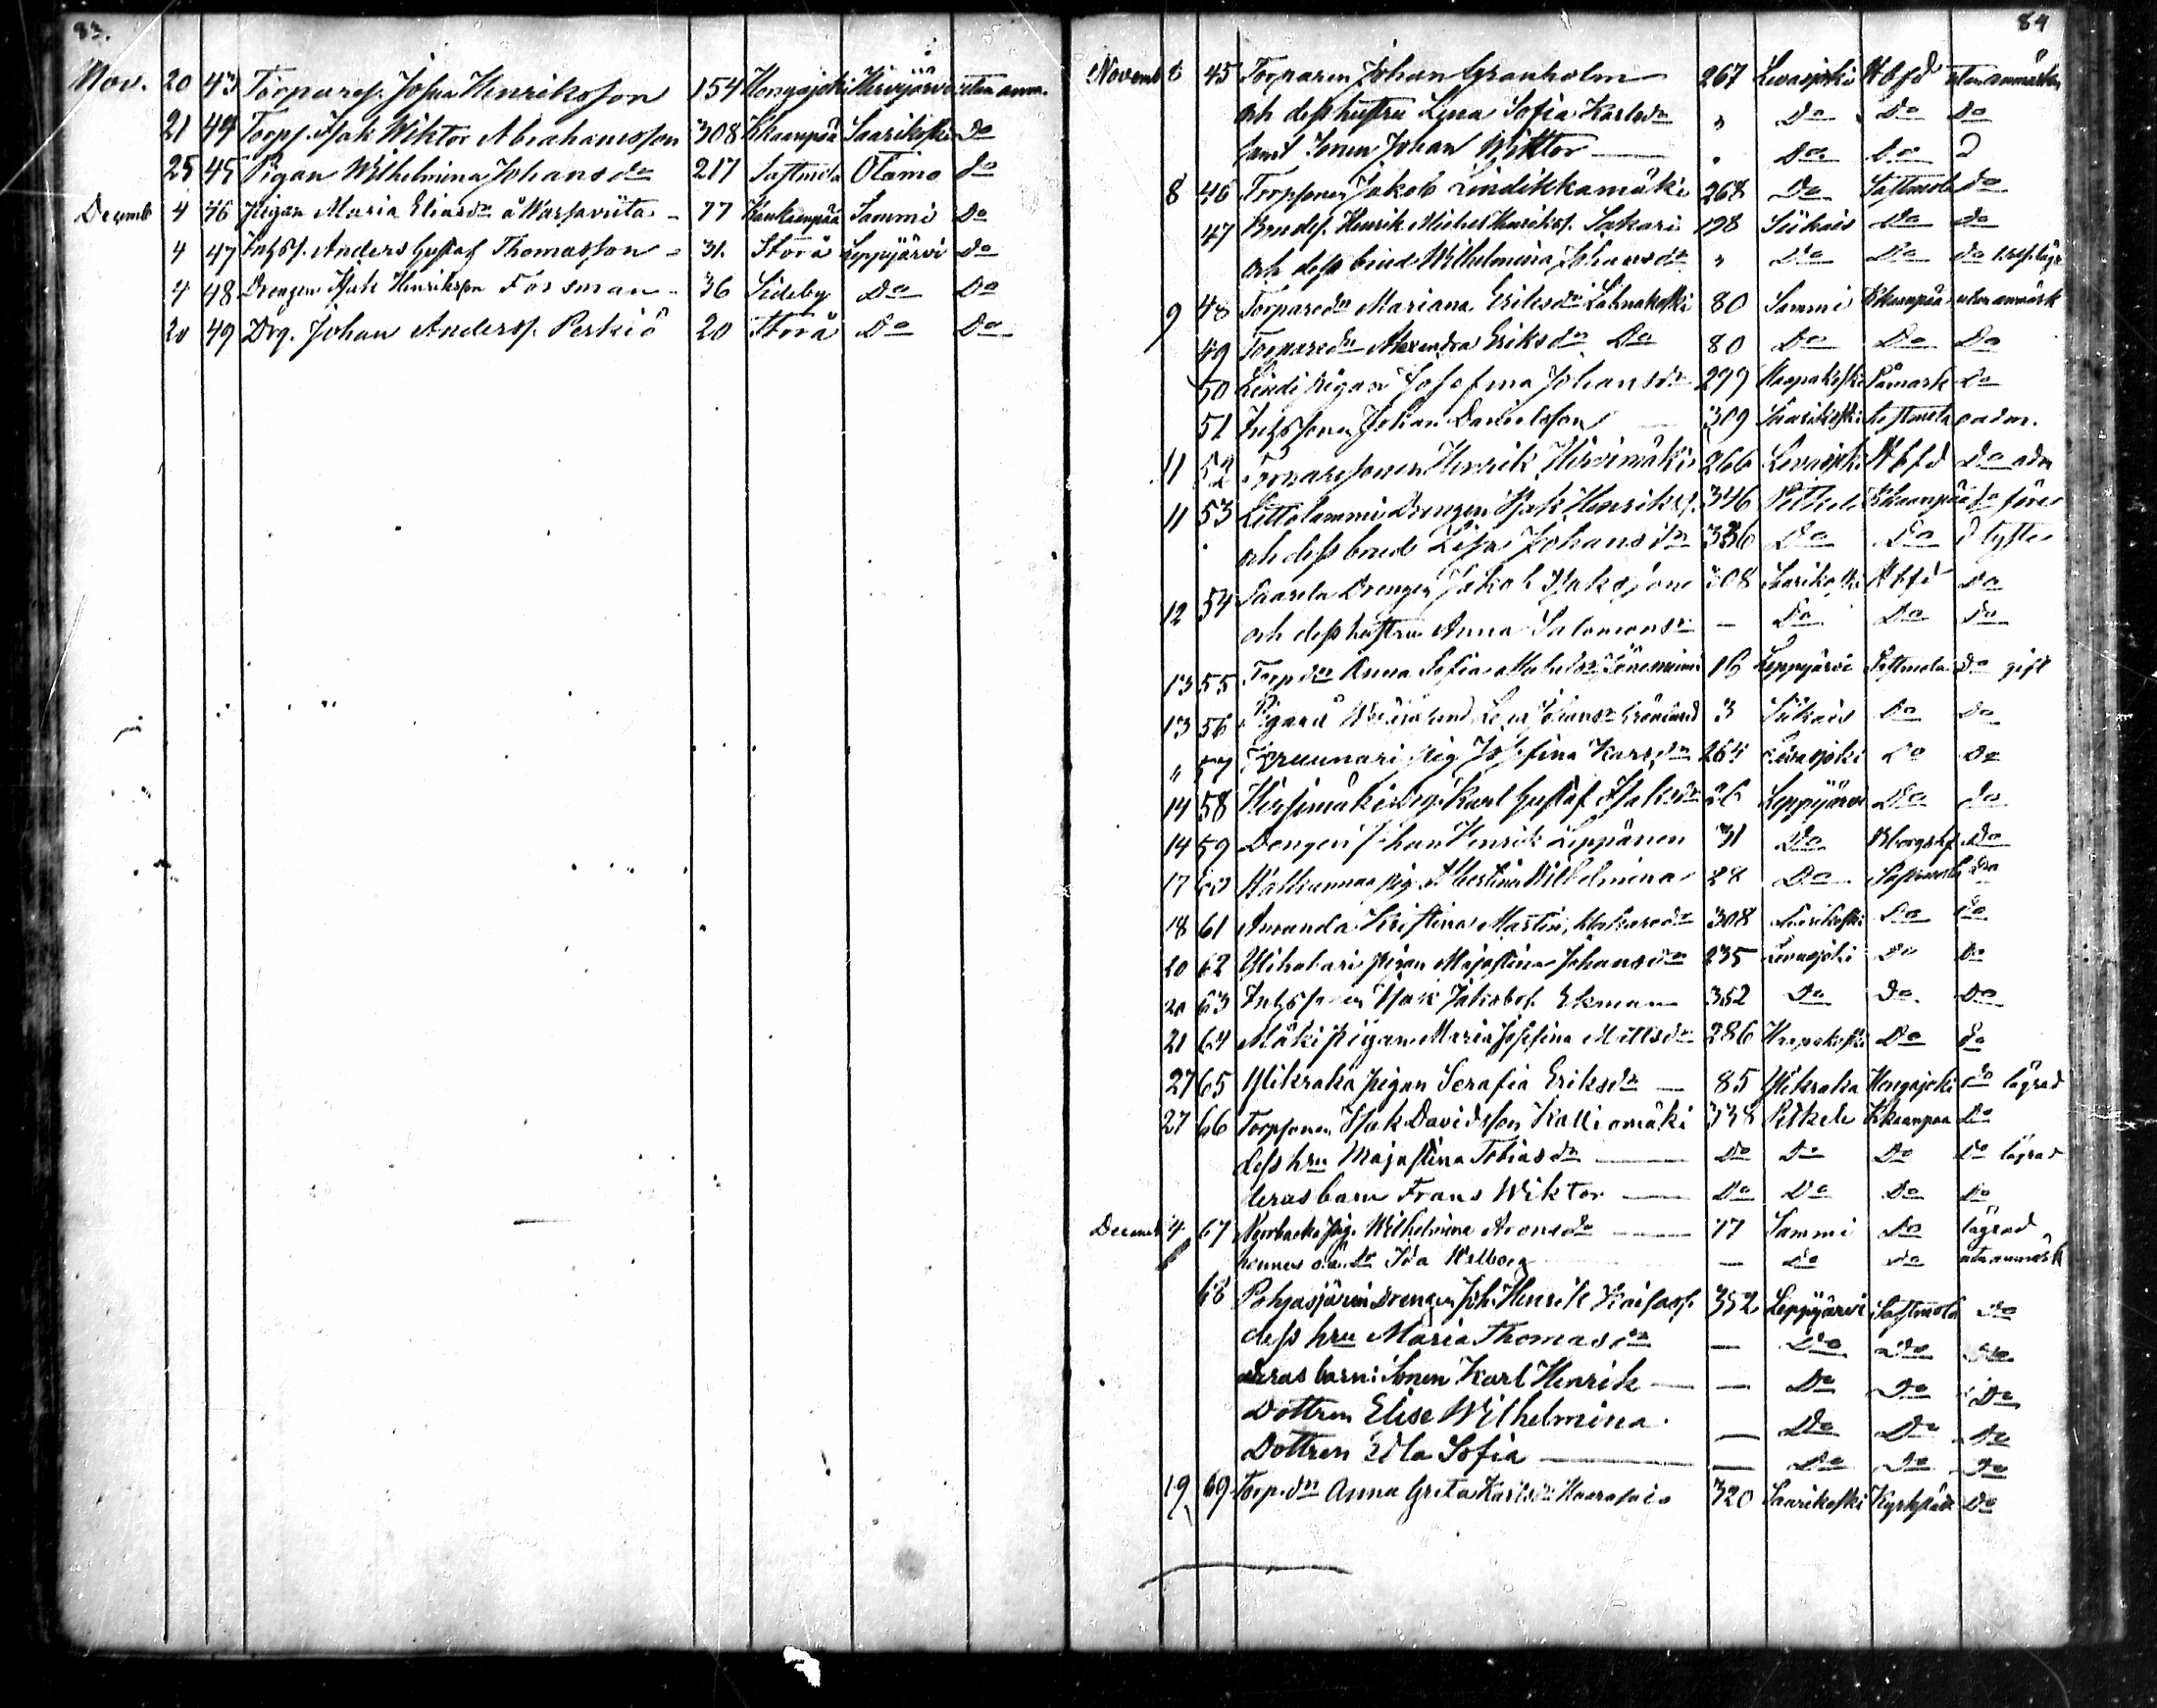 83.
Nov. 20 43 Torparess. Johan Henriksson 154 Hongojoki Hirvijärvi utan anm.
21 44 Torps. Isak Wiktor Abrahamsson 308 Kkaanpää Saarikoski Do
25 45 Pigan Wilhelmina Johansdr 217 Sastmola Otamo do
Decemb 4 46 Pigan Maria Eliasdr 77 Kankaanpää Sammi Do
4 47 Inhss. Anders Gustaf Thomasson 31. Storå Leppijärvi Do
4 48 Drengen Isak Henriksson Forsman 36 Sideby Do Do
20 49 Drg. Johan Anderss. Perkiö 20 Storå Do Do
84
Novemb 8 45 Torparen Johan Granholm 267 Levasjoki Hbfd utan anmärkn
och dess hustru Lena Sofia Karlsdr " Do Do Do
samt Sonen Johan Wiktor " Do Do D
8 46 Torpsonen Jakob Lindikkamäki 268 Do Sastmola Do
47 Bondes. Henrik Michel Henrikss. Sakari 198 Siikais Do do
och dess brud Wilhelmina Johansdr " Do Do do
9 48 Torparedr Mariana Eriksdr Lahnakoski 80 Sammi Kkaanpää utan anmärk
49 Torparedr Alexandra Eriksdr Do 80 Do Do Do
50 Lindi pigan Josefina Johansdr 299 Haapakoski Påmark do
51 Inhssonen Johan Danielsson 309 Saarikoski Sastmola
11 52 Torparesonen Henrik Hirvimäki 266 Levasjoki Hbfd Do
11 53 Drengen Isak Henrikss. 346 Kkaanpää do
och dess brud Lisa Johansdr 336 Do Do
12 54 Saarela Drengen Jakob Isaksson 308 Saarikoski Hbfd Do
och dess hustru Anna Salomonsdr — Do Do Do
13 55 Torpdr Anna Sofia 16 Leppijärvi Sastmola Do gift
13 56 Pigan 3 Siikais Do Do
" 57 pig Josefina Karlsdr 264 Levasjoki Do Do
14 58 Karl Gustaf 26 Leppijärvi Do Do
14 59 Drengen Johan Henrik Leppänen 31 Do Do
17 60 pig. Albertina Wilhelmina 28 Do Sastmola Do
18 61 Amanda Kristina Martin, 308 Saarikoski Do Do
20 62 pigan Majastina Johansdr 235 Levasjoki Do Do
20 63 Inhssonen Isak Jakobss. Ekman 352 Do Do. Do
21 64 Mäki pigan Maria Josefina Mattsdr 286 Haapakoski Do Do
27 65 Ylikraka pigan Serafia Eriksdr — 85 Ylikraka Hongojoki do lägrad
27 66 Torpsonen Isak Davidsson Kalliomäki 338 Kkaanpää Do
dess hru Majastina Tobiasdr — Do Do Do Do lägrad
deras barn Frans Wiktor — Do Do Do Do
Decemb 4 67 pig. Wilhelmina Aronsdr — 77 Sammi Do lägrad
hennes Ida Walborg — Do do utan anmärk
68 Pohjasjärvi Drengen Joh. Henrik 352 Leppijärvi Sastmola Do
dess hru Maria Thomasdr — Do Do Do
deras barn: Sonen Karl Henrik — — Do Do Do
Dottren Elise Wilhelmina. — Do Do Do
Dottren Edla Sofia — — Do Do Do
19 69 Torp.dr Anna Greta Karlsdr 320 Saarikoski Do